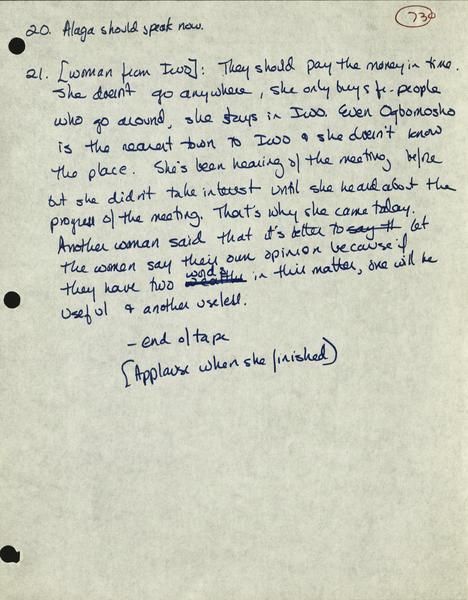 730
20. Alaga should speak now.
21. [woman from Iwo]: They should pay the money in time.
She doesn't go anywhere, she only buys fr. people
who go around, she stays in Iwo. Even Ogbomosho
is the nearest town to Iwo & she doesn't know
the place. She's been hearing of the meeting before
but she didn't take interest until she heard about the
progress of the meeting. That's why she came today.
Another woman said that it's better to say it let
the women say their own opinion because if
they have two words in this matter, one will be
useful & another useless.
- end of tape
[Applause when she finished)